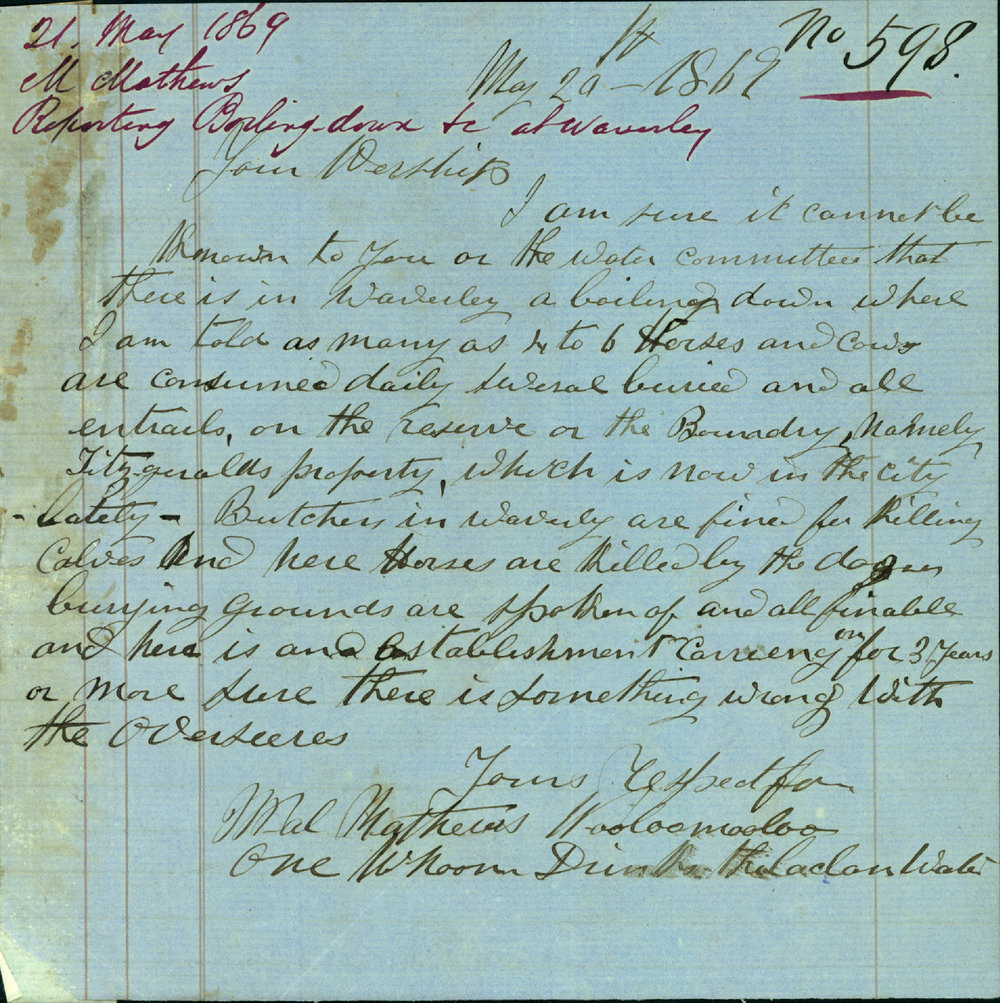 21. May 1869
M Mathews
Reporting Boiling-down &c at Waverley
No 598.
May 20 - 1869
Your Worship
I am sure it cannot be
Known to You or the water committee that
there is in Waverley a boiling down where
I am told as many as 4 to 6 Horses and cows
are consumed daily several buried and all
entrails, on the reserve or the Boundry, Namely
Fitzgeralds property, which is now in the City
- lately - Butchers in Waverly are fined for Killing
Calves And here Horses are Killed by the dozen
burying grounds are spoken of and all finable
and here is and establishment carrieng on for 3 Years
or more sure there is something wrong with
the Overseeres
Yours
Mathews Wooloomooloo
One Whoom Drinks the Water